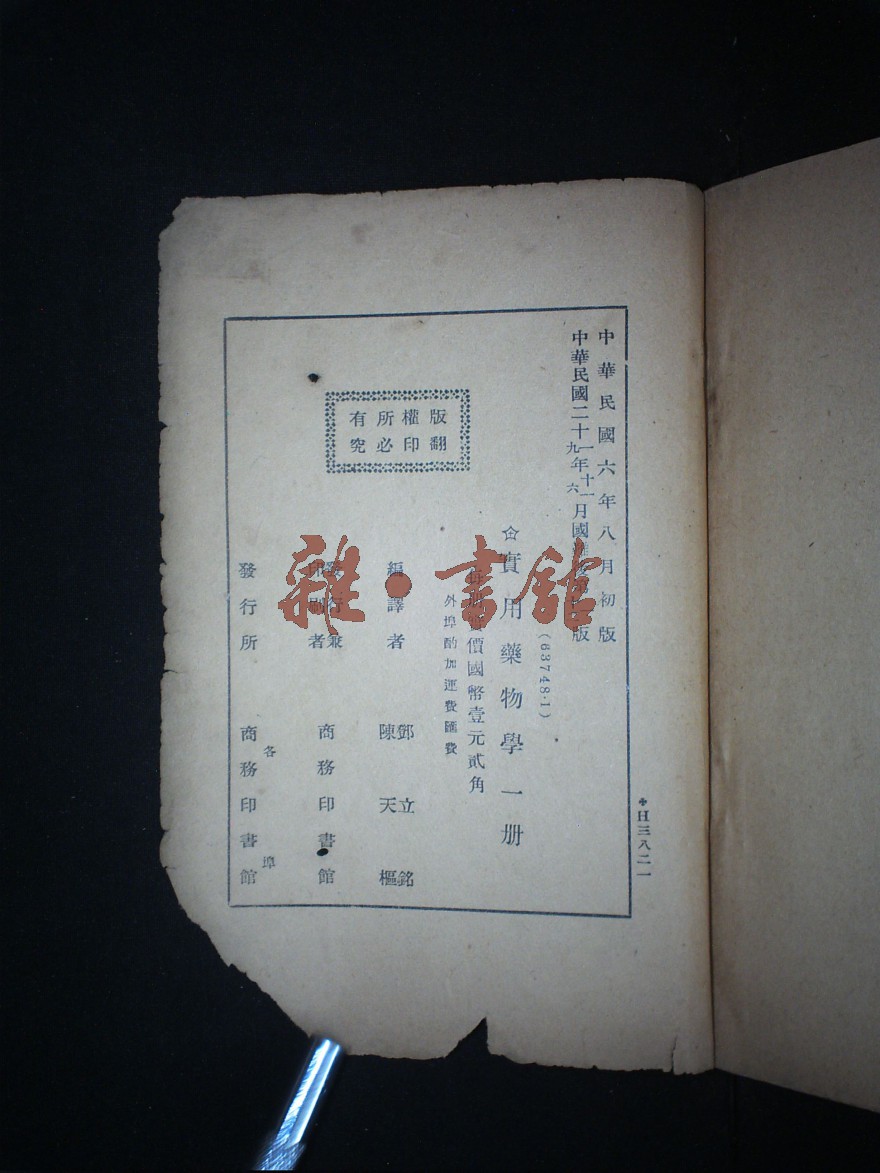 中華民國六年八月初版
中華民國二十一年十一月國
九 六
版
✩實用藥物學一册
(63748·1)
價國幣壹元貳角
外埠酌加運費匯費
版權所有
翻印必究
編譯者 鄧立銘
陳天樞
發行兼
印刷者 商務印書館
發行所 各埠
商務印書館
✤H三八二一
雜·書館